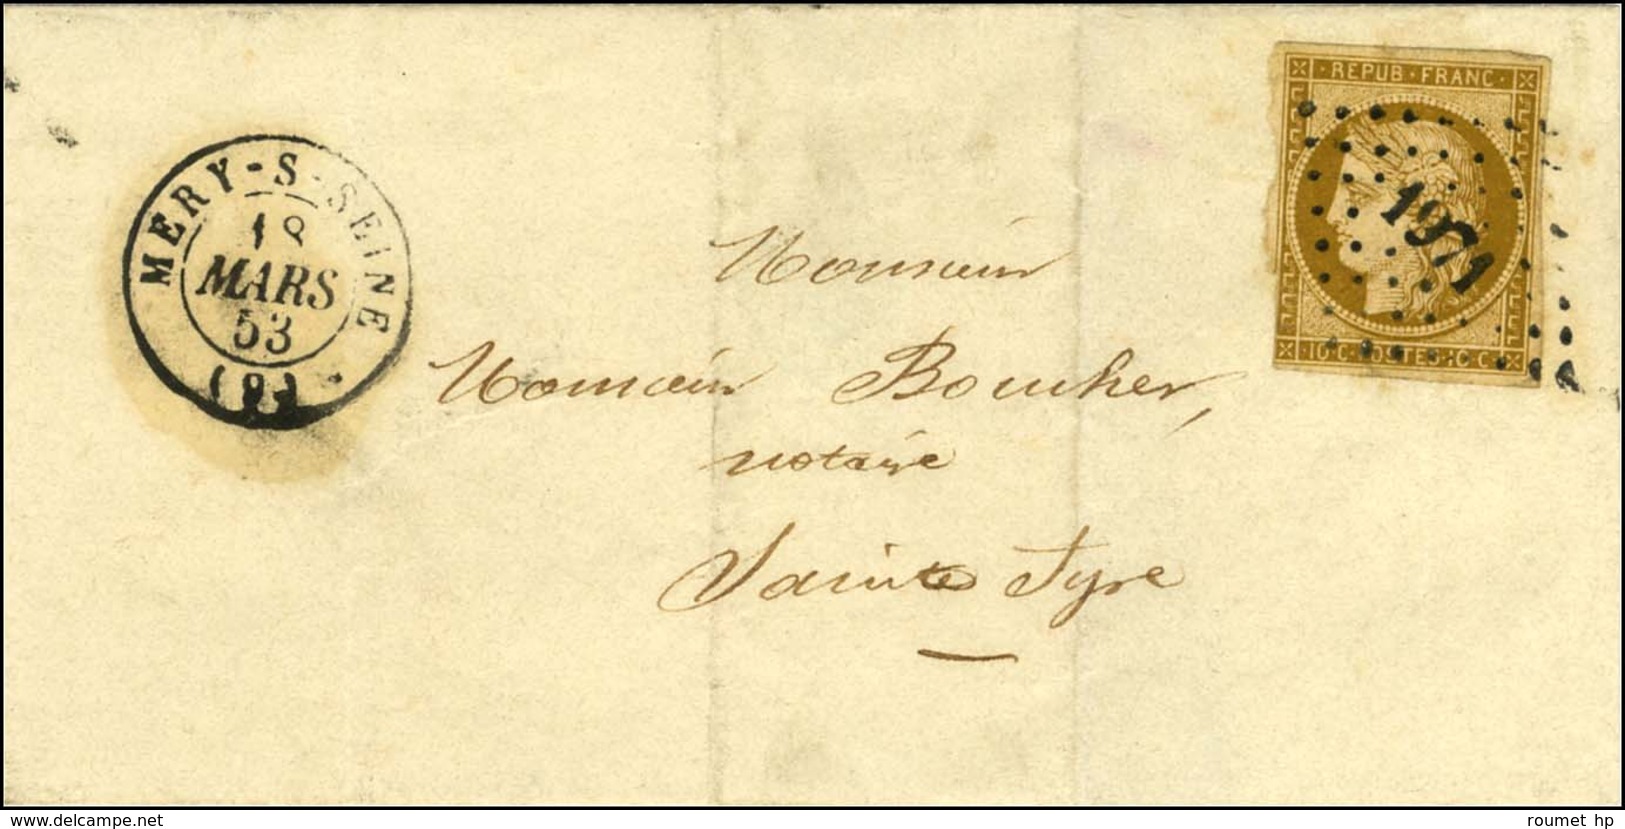 MERY-S-SEINE
18
MARS
53
(9)
REPUB · FRANC ·
1971
· 10 · C · POSTES · 10 · C ·
Monsieur
Monsieur Boucher,
notaire
Sainte Syre
www.delcampe.net
roumet hp